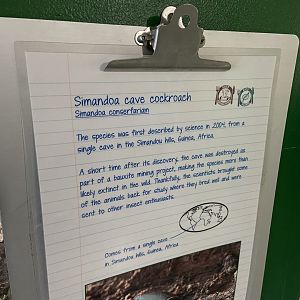 Simandoa cave cockroach
Simandoa conserfarian
The species was first described by science in 2004, from a
single cave in the Simandou hills, Guinea, Africa.
A short time after its discovery, the cave was destroyed as
part of a bauxite mining project, making the species more than
likely extinct in the wild. Thankfully, the scientists brought some
of the animals back for study where they bred well and were
sent to other insect enthusiasts.
Comes from a single cave
in Simandou hills, Guinea, Africa